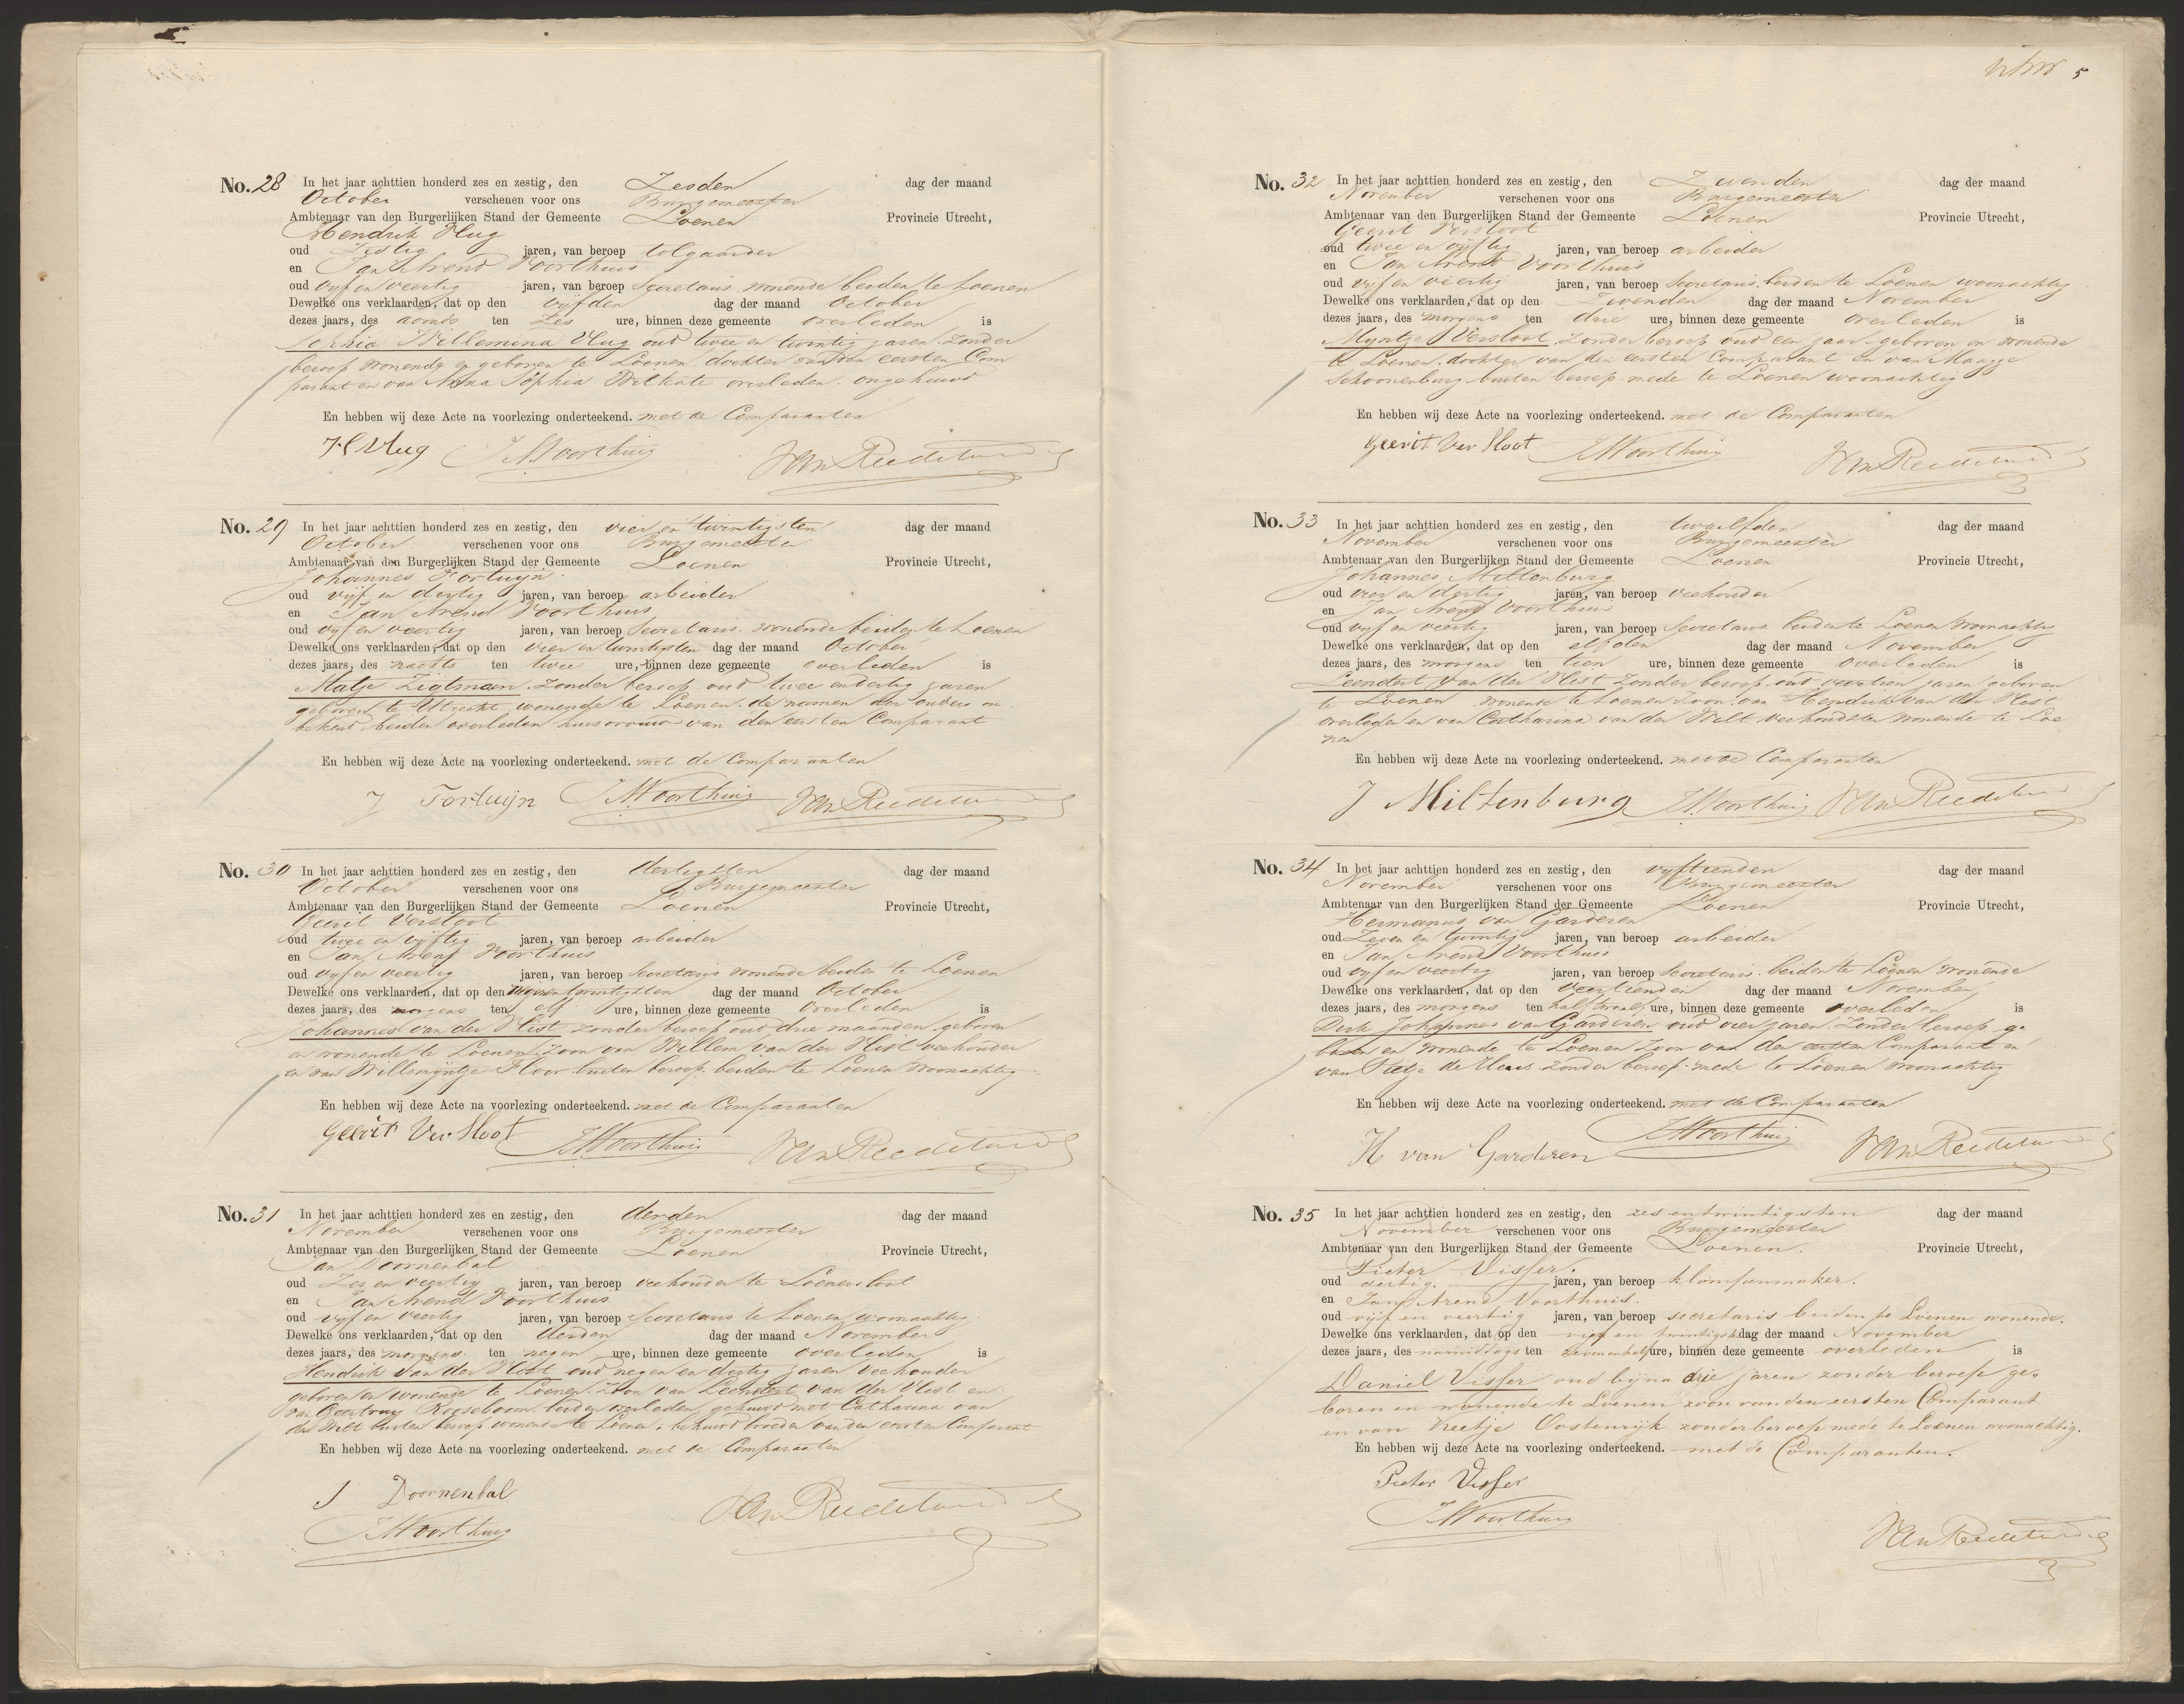 No. 28 In het jaar achttien honderd zes en zestig, den Zesden dag der maand
October verschenen voor ons Burgemeester
Ambtenaar van den Burgerlijken Stand der Gemeente Loenen Provincie Utrecht,
Hendrik Vlug
oud Zestig jaren, van beroep tolgaarder
en Jan Arend Voorthuis
oud vyf en veertig jaren, van beroep Secretaris, wonende beiden te Loenen
Dewelke ons verklaarden, dat op den vyfden dag der maand October
dezes jaars, des avonds ten zes ure, binnen deze gemeente overleden is
Sophia Willemina Vlug oud twee en twintig jaren zonder
beroep wonende en geboren te Loenen, dochter van den eersten Com
parant en van Anna Sophia overleden. ongehuwd
En hebben wij deze Acte na voorlezing onderteekend. met de Comparanten
H Vlug JA Voorthuis
No. 29 In het jaar achttien honderd zes en zestig, den vier en twintigsten dag der maand
October verschenen voor ons Burgemeester
Ambtenaar van den Burgerlijken Stand der Gemeente Loenen Provincie Utrecht,
Johannes Fortuyn
oud vyf en dertig jaren, van beroep arbeider
en Jan Arend Voorthuis
oud vyf en veertig jaren, van beroep Secretaris. wonende beiden te Loenen
Dewelke ons verklaarden, dat op den vier en twintigsten dag der maand October
dezes jaars, des nachts ten twee ure, binnen deze gemeente overleden is
Matje Zigtman zonder beroep oud twee en dertig jaren
geboren te Utrecht wonende te Loenen. de namen der ouders on
bekend, beiden overleden huisvrouw van den eersten Comparant
En hebben wij deze Acte na voorlezing onderteekend. met de Comparanten
J Fortuijn JA Voorthuis
No. 30 In het jaar achttien honderd zes en zestig, den dertigsten dag der maand
October verschenen voor ons Burgemeester
Ambtenaar van den Burgerlijken Stand der Gemeente Loenen Provincie Utrecht,
Geerit Versloot
oud twee en vyftig jaren, van beroep arbeider
en Jan Arend Voorthuis
oud vyf en veertig jaren, van beroep Secretaris wonende beiden te Loenen
Dewelke ons verklaarden, dat op den negenentwintigsten dag der maand October
dezes jaars, des morgens ten elf ure, binnen deze gemeente overleden is
Johannes van der Vlist zonder beroep oud drie maanden geboren
en wonende te Loenen Zoon van Willem van der Vlist veehouder
en van Willemyntje Floor buiten beroep. beiden te Loenen woonachtig
En hebben wij deze Acte na voorlezing onderteekend. met de Comparanten
Geerit Ver Sloot JA Voorthuis
No. 31 In het jaar achttien honderd zes en zestig, den derden dag der maand
November verschenen voor ons Burgemeester
Ambtenaar van den Burgerlijken Stand der Gemeente Loenen Provincie Utrecht,
Jan Doornenbal
oud Zes en veertig jaren, van beroep veehouder te Loenersloot
en Jan Arend Voorthuis
oud vyf en veertig jaren, van beroep Secretaris te Loenen woonachtig
Dewelke ons verklaarden, dat op den derden dag der maand November
dezes jaars, des morgens ten negen ure, binnen deze gemeente overleden is
Hendrik van der Vlist oud negen en dertig jaren Veehouder
geboren en wonende te Loenen Zoon van Leendert van der Vlist en
van Geertruy Rooseboom beiden overleden, gehuwd met Catharina van
der Welt buiten beroep wonende te Loenen, behuwd broeder van den eersten Comparant
En hebben wij deze Acte na voorlezing onderteekend. met de Comparanten
J Doornenbal
JA Voorthuis
5
No. 32 In het jaar achttien honderd zes en zestig, den Zevenden dag der maand
November verschenen voor ons Burgemeester
Ambtenaar van den Burgerlijken Stand der Gemeente Loenen Provincie Utrecht,
Geerit Versloot
oud twee en vyftig jaren, van beroep arbeider
en Jan Arend Voorthuis
oud vyf en veertig jaren, van beroep Secretaris. beiden te Loenen woonachtig
Dewelke ons verklaarden, dat op den Zevenden dag der maand November
dezes jaars, des morgens ten drie ure, binnen deze gemeente overleden is
Myntje Versloot, zonder beroep oud een jaar geboren en wonende
te Loenen. dochter van den eersten Comparant en van Maagje
Schoonenburg buiten beroep. mede te Loenen woonachtig
En hebben wij deze Acte na voorlezing onderteekend. met de Comparanten
Geerit Ver Sloot JA Voorthuis
No. 33 In het jaar achttien honderd zes en zestig, den twaalfden dag der maand
November verschenen voor ons Burgemeester
Ambtenaar van den Burgerlijken Stand der Gemeente Loenen Provincie Utrecht,
Johannes Miltenburg
oud vier en dertig jaren, van beroep veehouder
en Jan Arend Voorthuis
oud vyf en veertig jaren, van beroep Secretaris beiden te Loenen woonachtig
Dewelke ons verklaarden, dat op den elfden dag der maand November
dezes jaars, des morgens ten tien ure, binnen deze gemeente overleden is
Leendert van der Vlist zonder beroep oud veertien jaren geboren
te Loenen wonende te Loenen Zoon van Hendrik van der Vlist
overleden en van Catharina van der Welt veehoudster wonende te Loe
nen
En hebben wij deze Acte na voorlezing onderteekend. met de Comparanten
J Miltenburg JA Voorthuis
No. 34 In het jaar achttien honderd zes en zestig, den vyftienden dag der maand
November verschenen voor ons Burgemeester
Ambtenaar van den Burgerlijken Stand der Gemeente Loenen Provincie Utrecht,
Hermanus van Garderen
oud Zeven en twintig jaren, van beroep arbeider
en Jan Arend Voorthuis
oud vyf en veertig jaren, van beroep Secretaris. beiden te Loenen wonende
Dewelke ons verklaarden, dat op den veertienden dag der maand November
dezes jaars, des morgens ten half twaalf ure, binnen deze gemeente overleden is
Dirk Johannes van Garderen oud vier jaren zonder beroep ge
boren en wonende te Loenen Zoon van den eersten Comparant en
van zonder beroep. mede te Loenen woonachtig
En hebben wij deze Acte na voorlezing onderteekend. met de Comparanten
H van Garderen JA Voorthuis
No. 35 In het jaar achttien honderd zes en zestig, den zes entwintigsten dag der maand
November verschenen voor ons Burgemeester
Ambtenaar van den Burgerlijken Stand der Gemeente Loenen. Provincie Utrecht,
Pieter Visser.
oud dertig. jaren, van beroep klompenmaker.
en Jan Arend Voorthuis.
oud vijf en veertig jaren, van beroep secretaris beiden te Loenen wonende.
Dewelke ons verklaarden, dat op den en twintigste dag der maand November
dezes jaars, des namiddags ten zevenenhalf ure, binnen deze gemeente overleden is
Daniel Visser oud bijna drie jaren zonder beroep ge-
boren en wonende te Loenen zoon van den eersten Comparant
en van Neeltje Oostenrijk zonder beroep mede te Loenen woonachtig.
En hebben wij deze Acte na voorlezing onderteekend. met de Comparanten.
Pieter Visser
JA Voorthuis